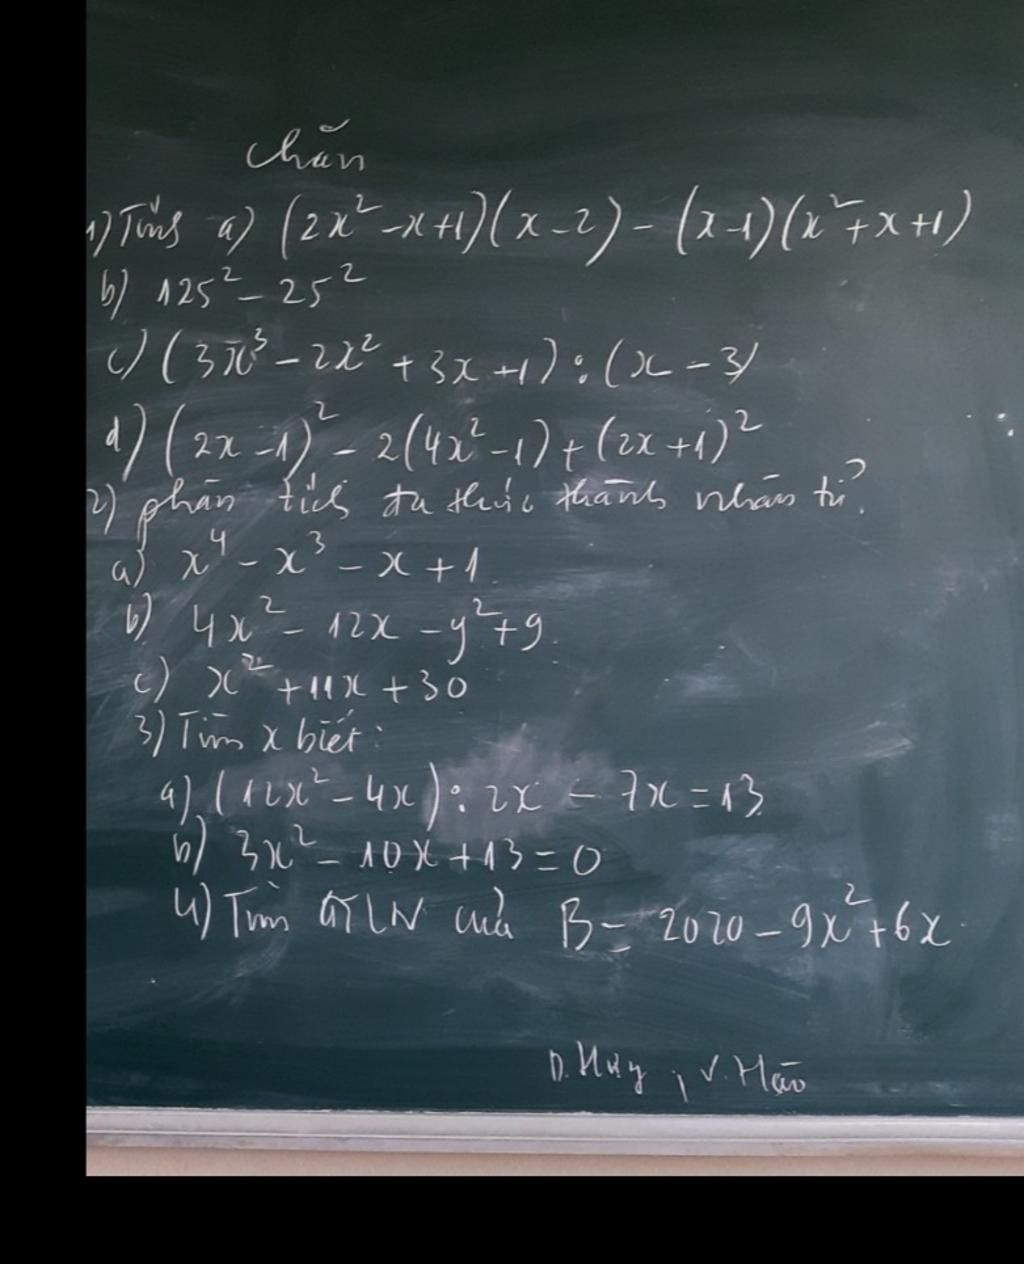 Chẵn
1) Tính a) (2x² - x + 1)(x - 2) - (x - 1)(x² + x + 1)
b) 125² - 25²
c) (3x³ - 2x² + 3x + 1) : (x - 3)
d) (2x - 1)² - 2(4x² - 1) + (2x + 1)²
2) phân tích đa thức thành nhân tử?
a) x⁴ - x³ - x + 1.
b) 4x² - 12x - y² + 9.
c) x² + 11x + 30
3) Tìm x biết:
a) (12x² - 4x) : 2x - 7x = 13
b) 3x² - 10x + 13 = 0
4) Tìm GTLN của B = 2020 - 9x² + 6x.
D. Huy, V. Hào